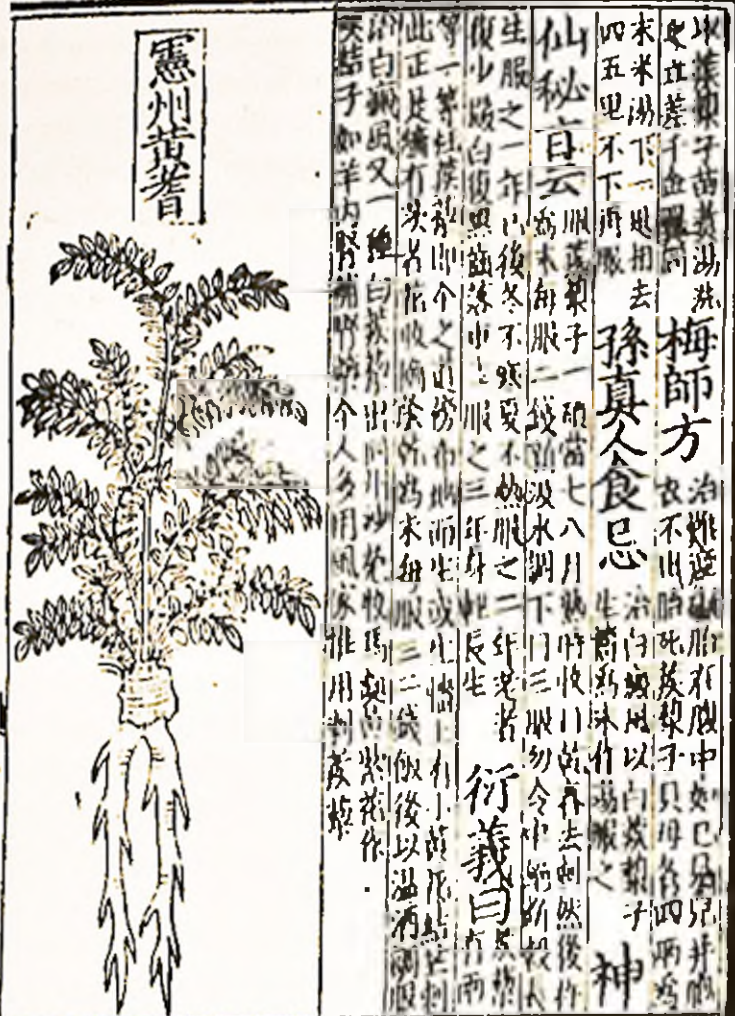 以蒺藜子苗煮湯洗
之立差千金
梅師方
治難産碍胎在腹中如已見兒并胞
衣不出胎死蒺藜子貝母各四兩為
末米湯下一匙相去
四五里不下再服
孫真人食忌
治白癜風以白蒺藜子
生擣為末作湯服之
神
仙秘旨云
服蒺藜子一碩當七八月熟時收日乾舂去刺然後杵
為末每服二錢新汲水調下日三服勿令中斷斷穀長
生服之一年以後冬不寒夏不熱服之二年老者
復少髮白復黑齒落重生服之三年身輕長生
衍義曰
蒺藜
有兩
等一等杜蒺藜即今之道傍布地而生或生墻上有小黃花結芒刺
此正是墻有茨者花收摘蔭乾為末每服三二錢飯後以溫酒調服
治白癜風又一種白蒺藜出同州沙苑牧馬處紫花作
莢結子如羊內腎補腎藥今人多用風家惟用刺蒺藜
憲州黃耆